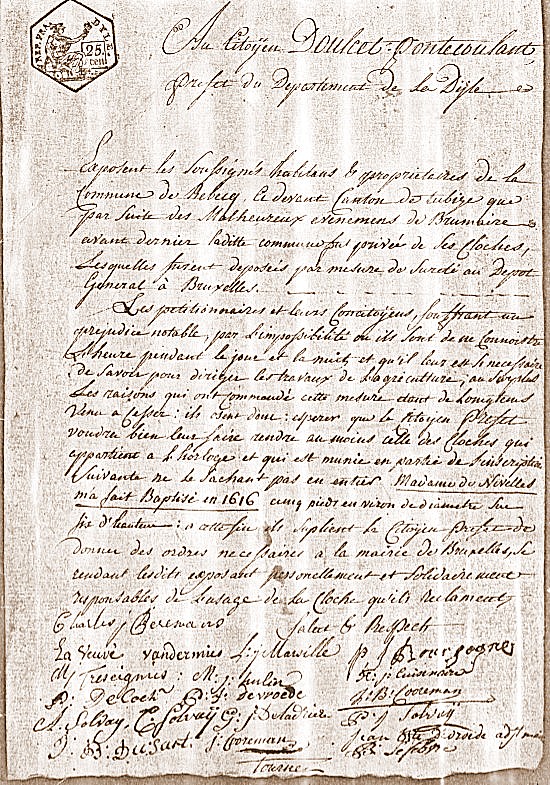 REP. FRA. DYLE
25
cen
Au Citoyen Doulcet-pontecoulant
Prefet du Departement de la Dÿle
Exposent les Soussignés habitans & proprietaires de la
Commune de Rebecq, Ce devant Canton de tubize que
par Suite des Malheureux evenemens de Brumaire
avant dernier laditte commune fus privée de Ses Cloches,
Lesquelles furent deposées par mesure de Sureté au Depot
General à Bruxelles.
Les petitionnaires et leurs Concitoyens, souffrant un
prejudice notable, par L'impossibilité ou ils sont de ne Connoitre
L'heure pendant le jour et la nuit, et qu'il leur est si necessaire
de Savoir pour diriger les travaux de L'agriculture, au Surplus
Les raisons qui ont commandé cette mesure etant de Longtems
Venu a Cesser: ils osent donc esperer que le Citoyen Prefet
voudra bien leur faire rendre au moins celle des Cloches qui
appartient a L'horloge et qui est munie en partie de l'inscription
Suivante ne le Sachant pas en entier Madame de Nivelles
m'a fait Baptisé en 1616 cinq pieds environ de diametre Sur
six d'hauteur: a cette fin ils suplient le Citoyen Prefet de
donner des ordres necessaires à la mairie de Bruxelles, Se
rendant lesdits exposant personellement et Solidairement
responsables de L'usage de la Cloche qu'ils reclament,
Salut & Respect
La veuve vandermies
P J Bourgogne
M. J. hulin
P. DeCock
devroede
A. Solvay
G. J. Deladrier
P J Solvay
B. Dusart
J: Cooreman
Tournee